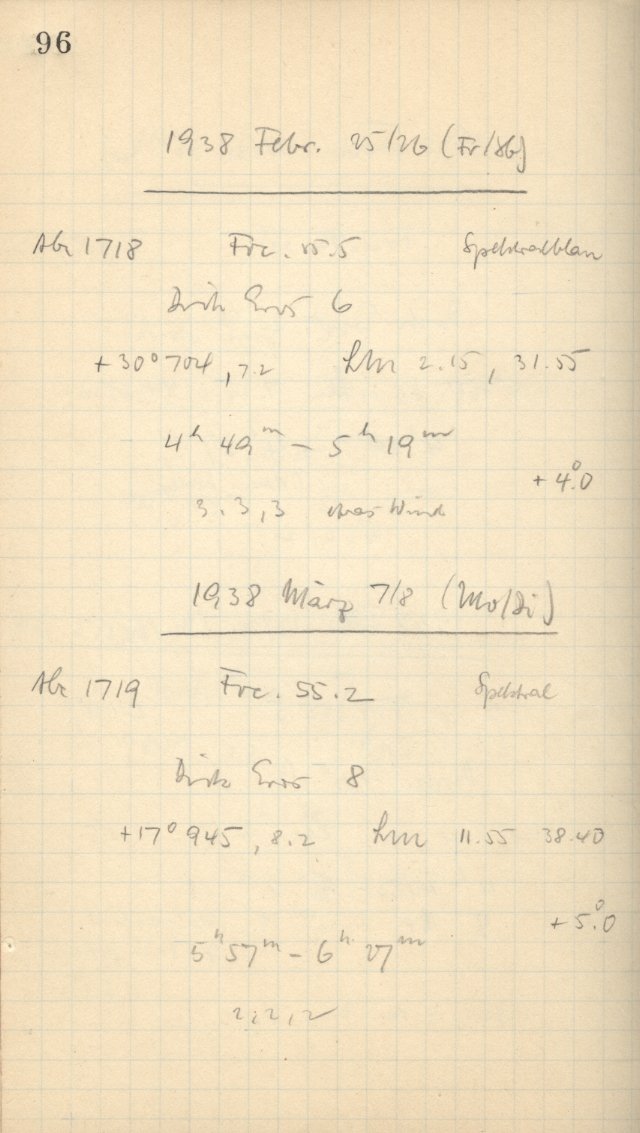 96
1938 Febr. 25/26 (Fr/Sb)
1718 Foc. 55.5 Spektralblau
Eros 6
+30° 704, 7.2 Lm 2.15, 31.55
4h 49m – 5h 19m
+4°.0
3, 3, 3 etwas Wind
1938 März 7/8 (Mo/Di)
1719 Foc. 55.2 Spektral
Eros 8
+17° 945, 8.2 Lm 11.55 38.40
+5°.0
5h 57m – 6h 27m
2, 2, 2